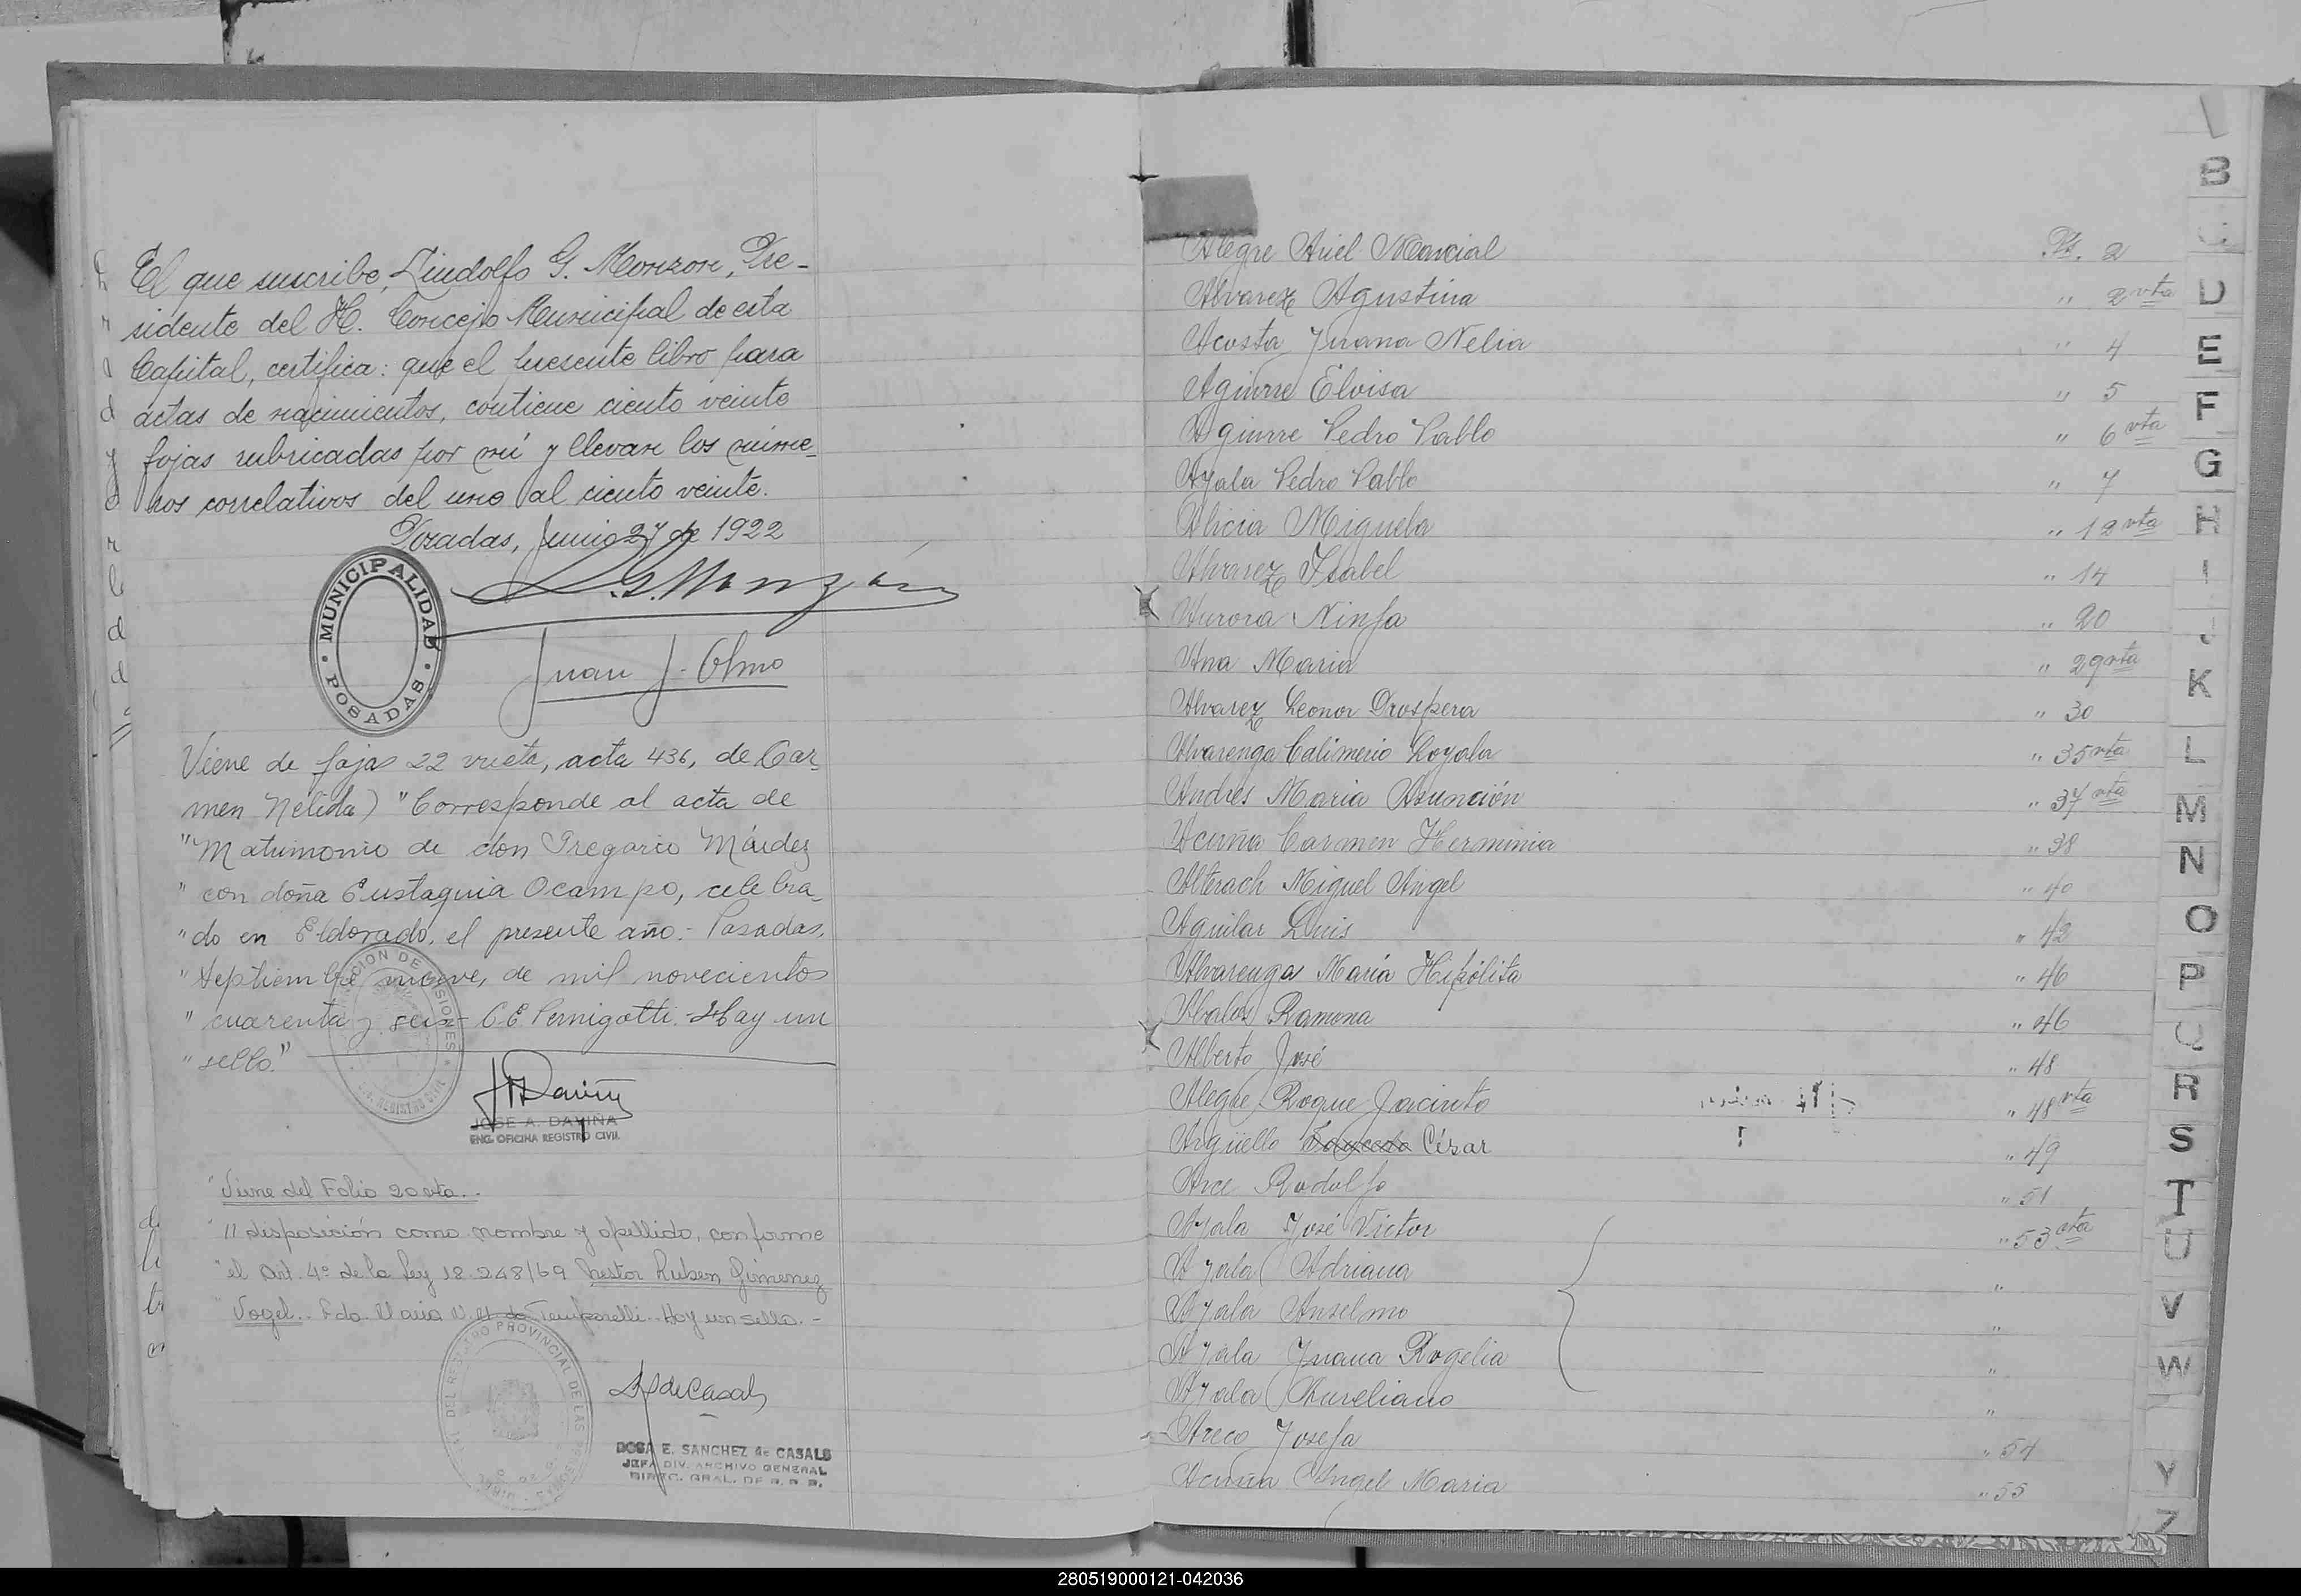 El que suscribe, Lindolfo G. Monzon, Pre-
sidente del H. Concejo Municipal de esta
Capital, certifica: que el presente libro para
actas de nacimientos, contiene ciento veinte
fojas rubricadas por mí y llevan los núme-
ros correlativos del uno al ciento veinte.
Posadas, Junio 27 de 1922
L. G. Monzón
MUNICIPALIDAD
POSADAS
Juan J. Olmo
Viene de fojas 22 vuelta, acta 436, de Car-
men Nélida) "Corresponde al acta de
"Matrimonio de don Gregorio Méndez
" con doña Eustaquia Ocampo, celebra-
"do en Eldorado, el presente año.- Posadas,
"Septiembre nueve, de mil novecientos
" cuarenta y seis- C.E. Pernigotti.- Hay un
" sello."
JOSE A. DAVIÑA
ENC. OFICINA REGISTRO CIVIL
"Viene del Folio 20 vta..
"// disposición como nombre y apellido, conforme
"el Art. 4º de la Ley 18.248/69 Nestor Ruben Gimenez
"Vogel.. Fdo. Hay un sello.-
E. SANCHEZ de CASALS
JEFA DIV. ARCHIVO GENERAL
DIREC. GRAL. DE
Alegre Ariel Marcial Fs. 2
Alvarez Agustina " 2 vta
Acosta Juana Nelia " 4
Aguirre Eloisa " 5
Aguirre Pedro Pablo " 6 vta
Ayala Pedro Pablo " 7
Alicia Miguela " 12 vta
Alvarez Isabel " 14
Aurora Ninfa " 20
Ana Maria " 29 vta
Alvarez Leonor Prospera " 30
Alvarenga Calimerio Loyola " 35 vta
Andrés Maria Asunción " 37 vta
Acuña Carmen Herminia " 38
Alterach Miguel Angel " 40
Aguilar Luis " 42
Alvarenga María Hipólita " 46
Abalos Ramona " 46
Alberto José " 48
Alegre Roque Jacinto " 48 vta
Argüello César " 49
Arce Rodolfo " 51
Ayala José Victor " 53 vta
Ayala Adriana "
Ayala Anselmo "
Ayala Juana Rogelia "
Ayala Aureliano "
Areco Josefa " 54
Acuña Angel Maria " 55
B
C
D
E
F
G
H
I
J
K
L
M
N
O
P
Q
R
S
T
U
V
W
Y
Z
280519000121-042036